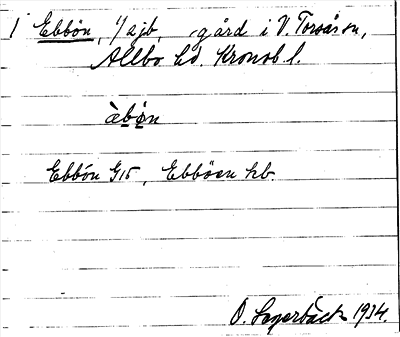 1 Ebbön, 1/2 jb, gård i V. Torsås sn,
Allbo hd. Kronob l.
àbø̀n
Ebbön G15, Ebböen hb.
O. Lagerbäck 1934.